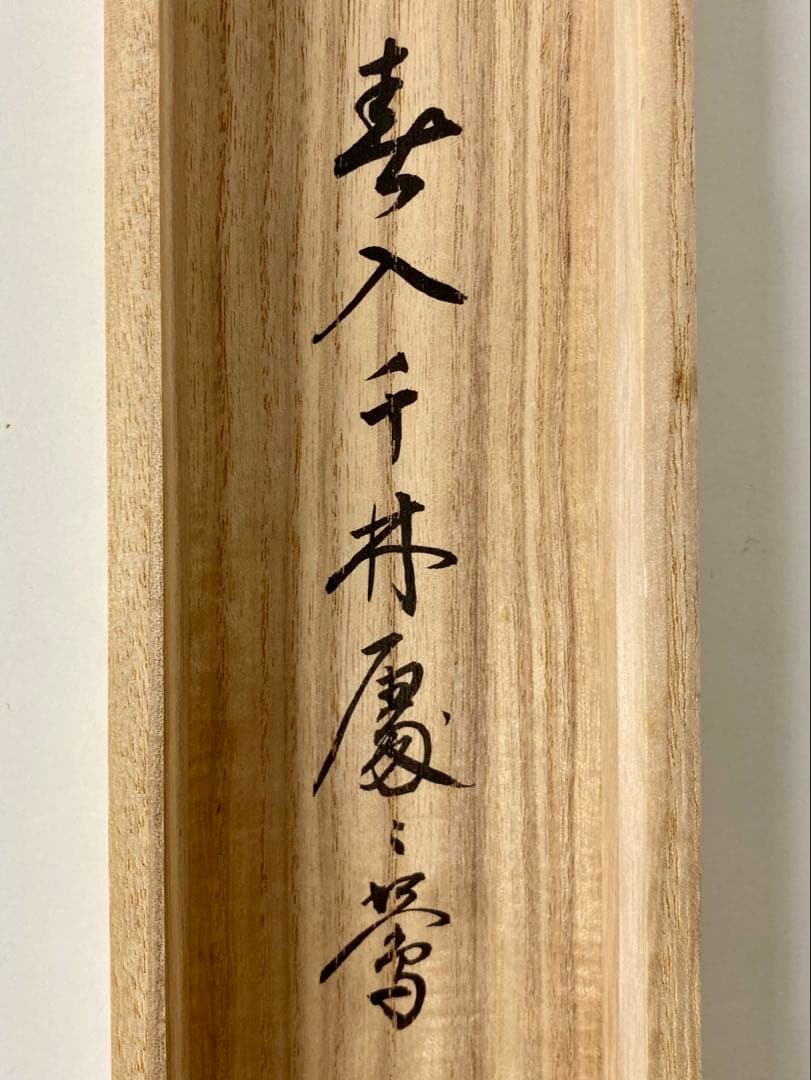 春入千林處〻鶯